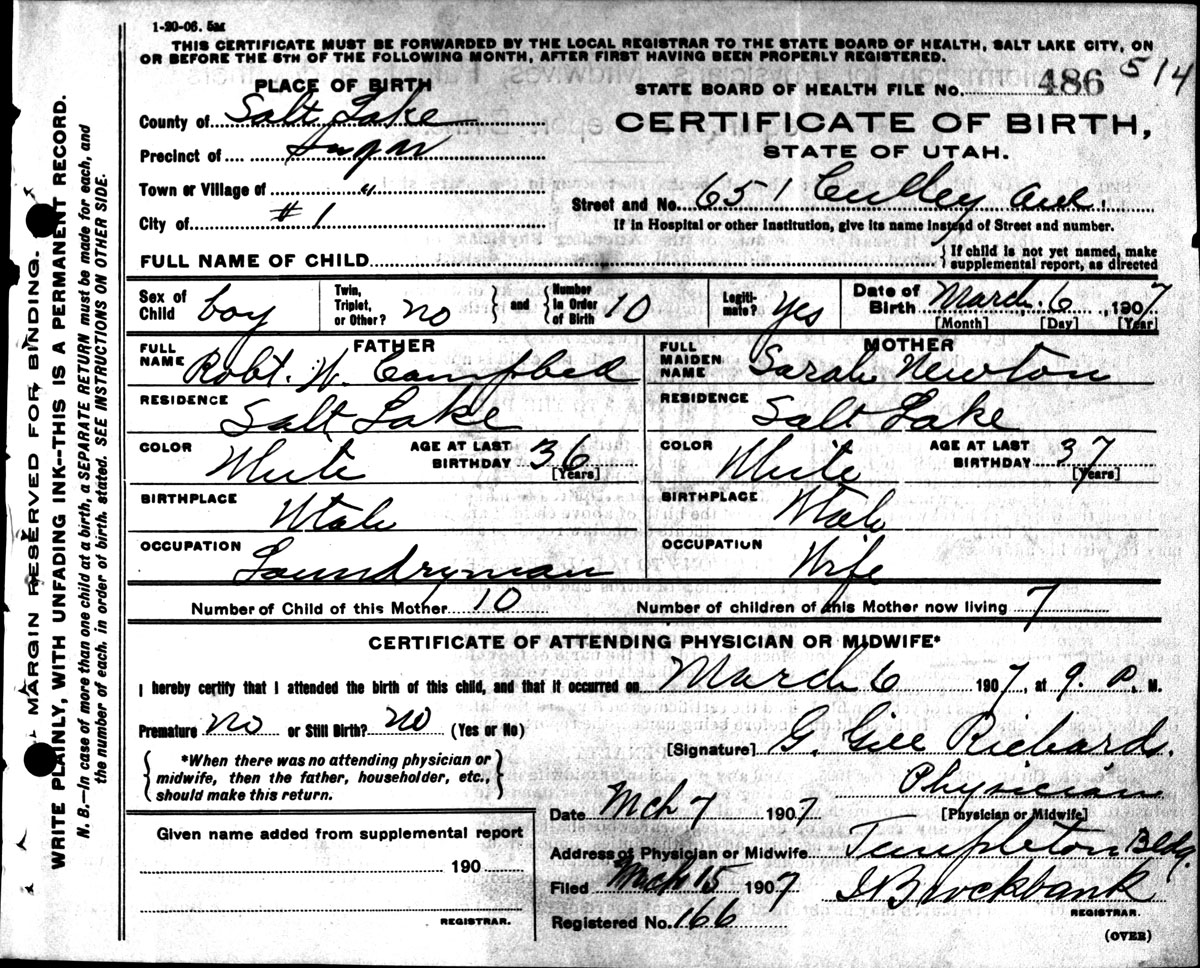 1-20-06. 5M
THIS CERTIFICATE MUST BE FORWARDED BY THE LOCAL REGISTRAR TO THE STATE BOARD OF HEALTH, SALT LAKE CITY, ON
OR BEFORE THE 5TH OF THE FOLLOWING MONTH, AFTER FIRST HAVING BEEN PROPERLY REGISTERED.
514
PLACE OF BIRTH
STATE BOARD OF HEALTH FILE NO. 486
County of Salt Lake
CERTIFICATE OF BIRTH,
Precinct of Sugar
STATE OF UTAH.
Town or Village of "
Street and No. 651 Ave.
City of #1
If in Hospital or other Institution, give its name instead of Street and number.
FULL NAME OF CHILD
If child is not yet named, make
supplemental report, as directed
Sex of Child boy
Twin, Triplet, or Other? no and Number in Order of Birth 10
Legitimate? Yes
Date of Birth March 6, 1907
[Month] [Day] [Year]
FATHER
MOTHER
FULL NAME Robt. W. Campbell
FULL MAIDEN NAME Sarah Newton
RESIDENCE Salt Lake
RESIDENCE Salt Lake
COLOR White AGE AT LAST BIRTHDAY 36 [Years]
COLOR White AGE AT LAST BIRTHDAY 37 [Years]
BIRTHPLACE Utah
BIRTHPLACE Utah
OCCUPATION Laundryman
OCCUPATION Wife
Number of Child of this Mother 10 Number of children of this Mother now living 7
CERTIFICATE OF ATTENDING PHYSICIAN OR MIDWIFE*
I hereby certify that I attended the birth of this child, and that it occurred on March 6 1907, at 9. P. M.
Premature no or Still Birth? no (Yes or No)
[Signature] G. Gill Richards.
*When there was no attending physician or
midwife, then the father, householder, etc.,
should make this return.
Physician
[Physician or Midwife]
Date Mch 7 1907
Given name added from supplemental report
Address of Physician or Midwife Templeton Bldg.
190
Filed Mch 15 1907 Brockbank
REGISTRAR.
REGISTRAR.
Registered No. 166
(OVER)
MARGIN RESERVED FOR BINDING.
WRITE PLAINLY, WITH UNFADING INK--THIS IS A PERMANENT RECORD.
N. B.—In case of more than one child at a birth, a SEPARATE RETURN must be made for each, and
the number of each, in order of birth, stated. SEE INSTRUCTIONS ON OTHER SIDE.